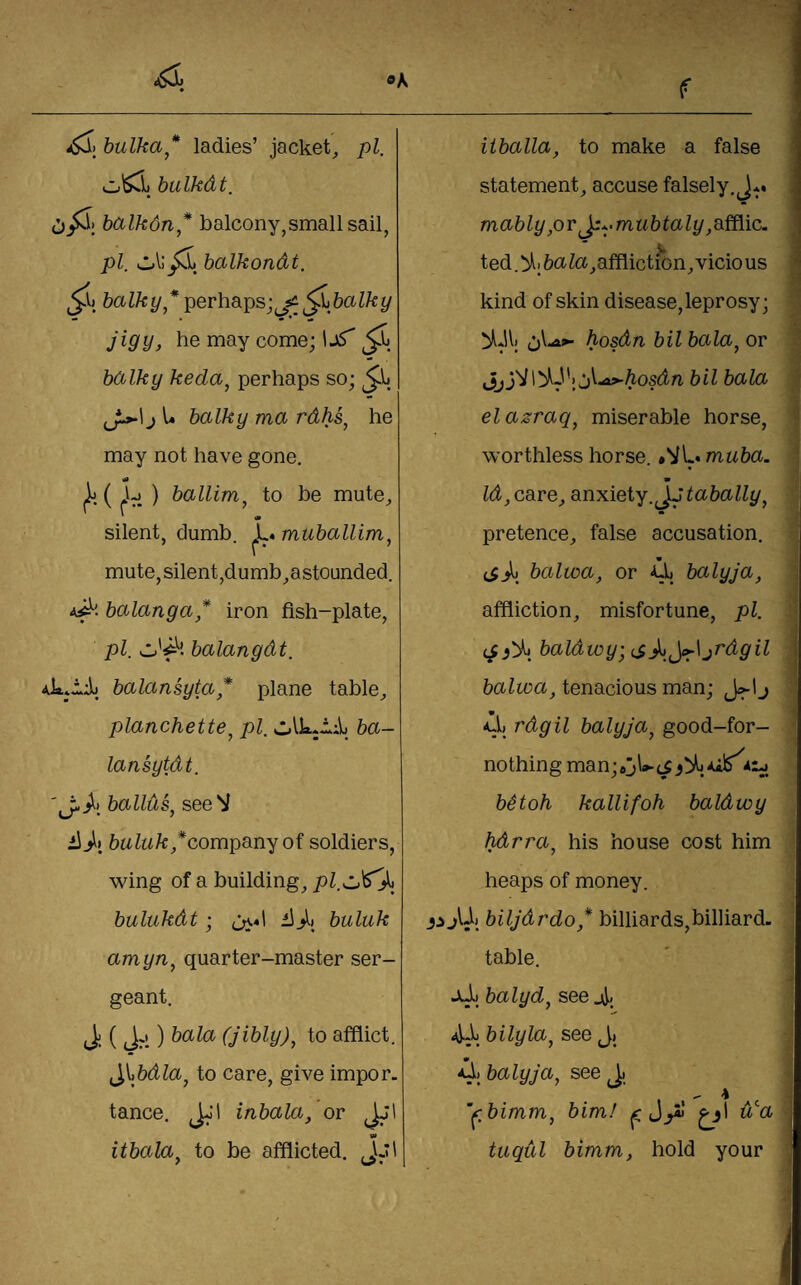 بلك ٥٨ بم
بلكه bulka,* ladies’ jacket, pl.
بلكات bulkât.
بلكون balkôn,* balcony, small sail,
pl. بلكونات balkonât.
بلكي balky,* perhaps; بلكي يجي balky
jigy, he may come; بلكي كدا
bâlky keda, perhaps so; بلكي
ما راحش balky ma râḥs, he
may not have gone.
بلم ( يبلم ) ballim, to be mute,
silent, dumb. مبلم muballim,
mute, silent, dumb, astounded.
بلنجه balanga,* iron fish-plate,
pl. بلنجات balangât.
بلنشيطه balansyṭa,* plane table,
planchette, pl. بلنشيطات ba-
lansyṭât.
بلوش ballûs, see لا
بلوك buluk,* company of soldiers,
wing of a building, pl. بلوكات
bulukât; بلوك امين buluk
amyn, quarter-master ser-
geant.
بلى ( يبلي ) bala (jibly), to afflict.
بالى bâla, to care, give impor-
tance. انبلى inbala, or اتبلى
itbala, to be afflicted. اتبلى
itballa, to make a false
statement, accuse falsely. مبلي
mably, or مبتلي mubtaly, afflic-
ted. بلا bala, affliction, vicious
kind of skin disease, leprosy;
حصان بالبلا ḥoṣân bil bala, or
حصان بالبلا الازرق ḥoṣân bil bala
el azraq, miserable horse,
worthless horse. مبالاه muba-
lâ, care, anxiety. تبلي tabally,
pretence, false accusation.
بلوى balwa, or بليه balyja,
affliction, misfortune, pl.
بلاوي balâwy; راجل بلوى râgil
balwa, tenacious man; راجل
بليه râgil balyja, good-for-
nothing man; بيته كلفه بلاوي حاره
bêtoh kallifoh balâwy
ḥârra, his house cost him
heaps of money.
بلياردو biljârdo,* billiards, billiard-
table.
بليد balyd, see بلد
بليله bilyla, see بل
بليه balyja, see بلى
بم bimm, bim! اوعى تقول بم û‘a
tuqûl bimm, hold your